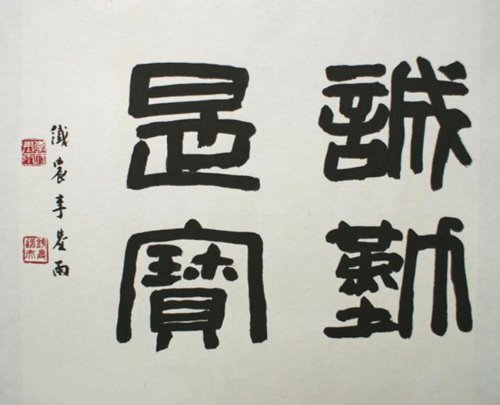 誠勤
是寶
鐵農李星雨